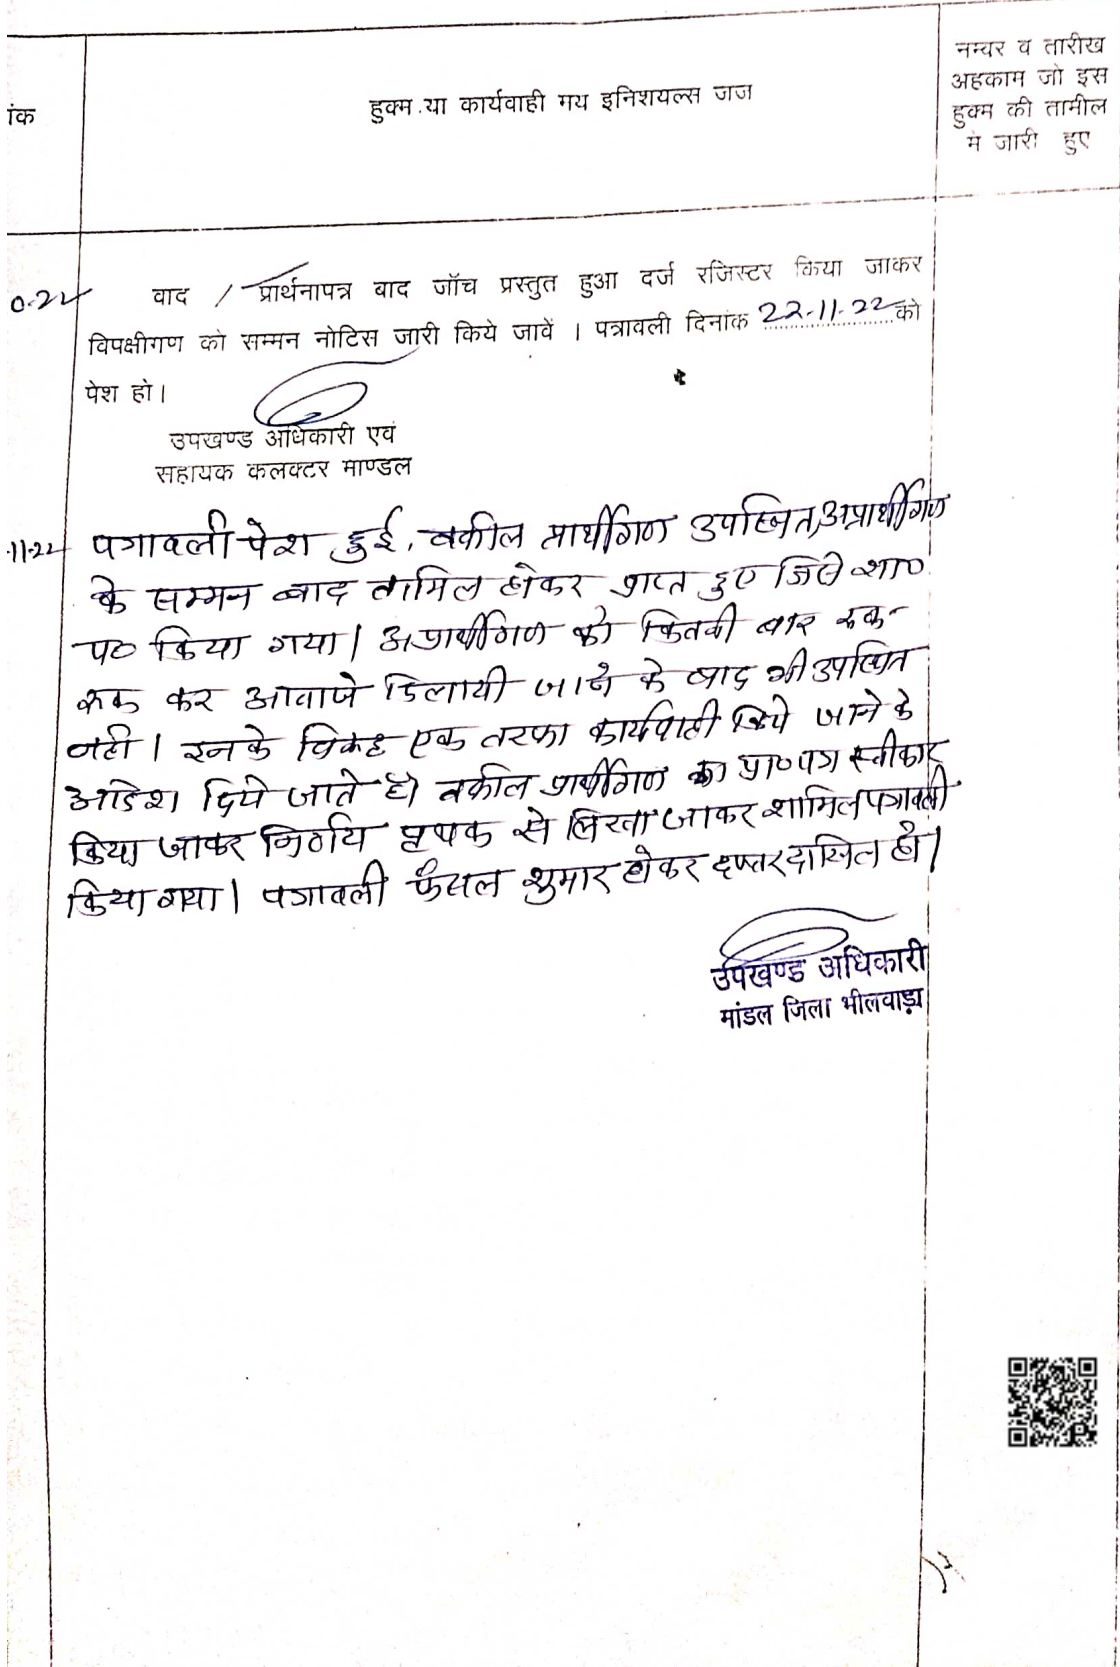 नम्वर व तारीख
अहकाम जो इस
हुक्म की तामील
में जारी हुए
ांक
हुक्म या कार्यवाही मय इनिशयल्स जज
0-22 वाद / प्रार्थनापत्र बाद जॉच प्रस्तुत हुआ दर्ज रजिस्टर किया जाकर
विपक्षीगण को सम्मन नोटिस जारी किये जावें । पत्रावली दिनांक 22-11-22 को
पेश हो।
उपखण्ड अधिकारी एवं
सहायक कलक्टर माण्डल
-11-22 पत्रावली पेश हुई, वकील प्रार्थीगण उपस्थित, अप्रार्थीगण
के सम्मन बाद तामिल होकर प्राप्त हुए जिसे शा०
प० किया गया। अप्रार्थीगण को कितनी बार रूक-
रूक कर आवाजे दिलायी जाने के बाद भी उपस्थित
नही । इनके विरूद्ध एक तरफा कार्यवाही किये जाने के
आदेश दिये जाते है। वकील प्रार्थीगण का प्रा०पत्र स्वीकार
किया जाकर निर्णय पृथक से लिखा जाकर शामिल पत्रावली
किया गया। पत्रावली फैसल शुमार होकर दफ्तर दाखिल हो।
उपखण्ड अधिकारी
मांडल जिला भीलवाड़ा